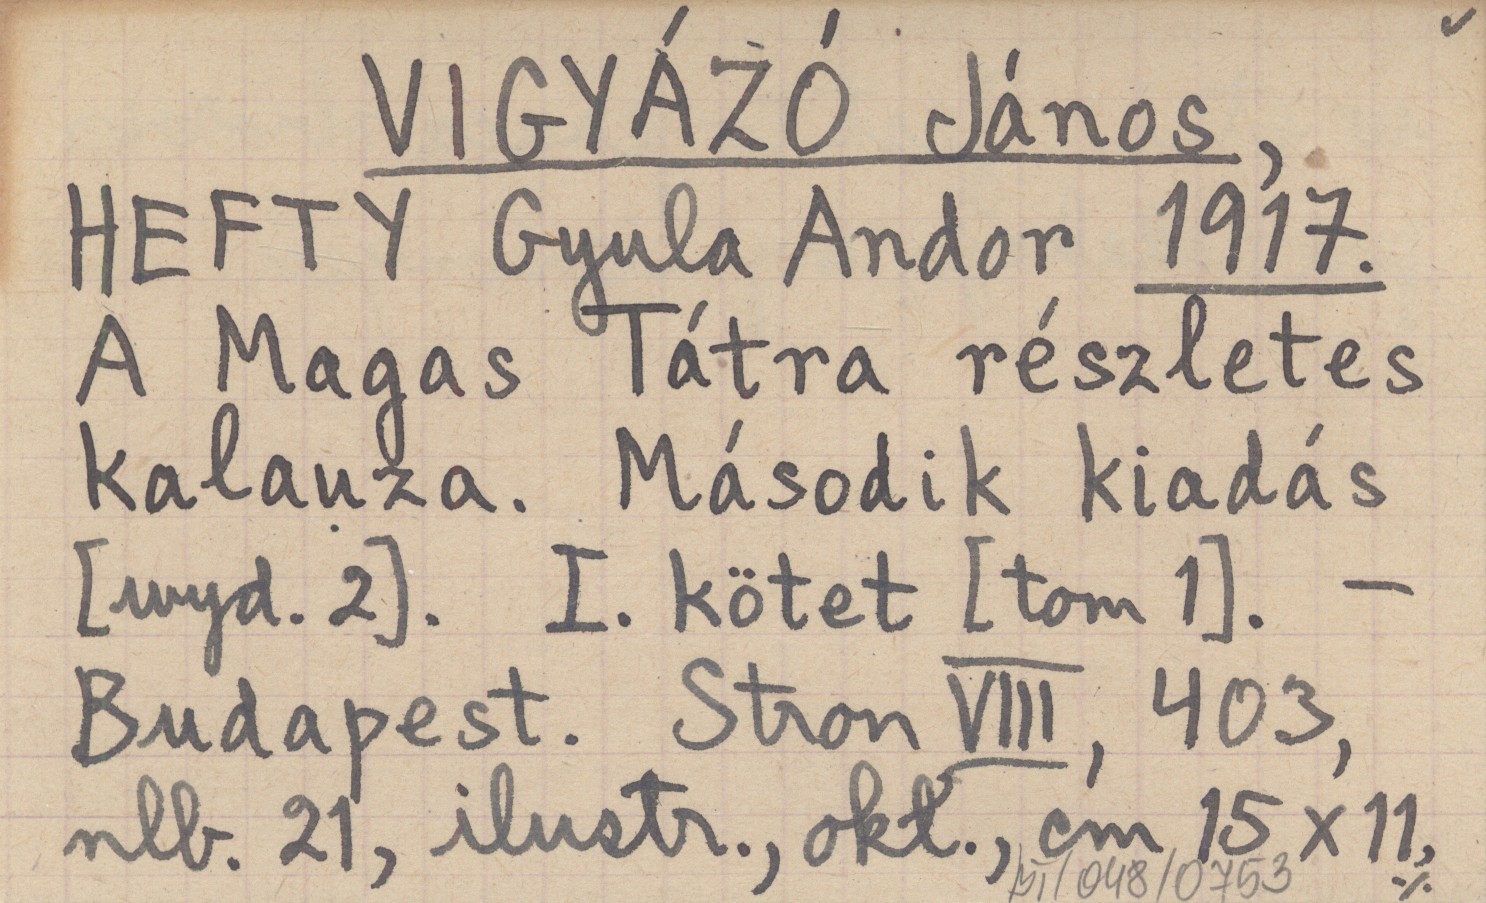 VIGYÁZÓ János,
HEFTY Gyula Andor 1917.
A Magas Tátra részletes
kalauza. Második kiadás
[wyd. 2]. I. kötet [tom 1]. —
Budapest. Stron VIII, 403,
nlb. 21, ilustr., okł., cm 15 x 11,
/048/0753 ·/.